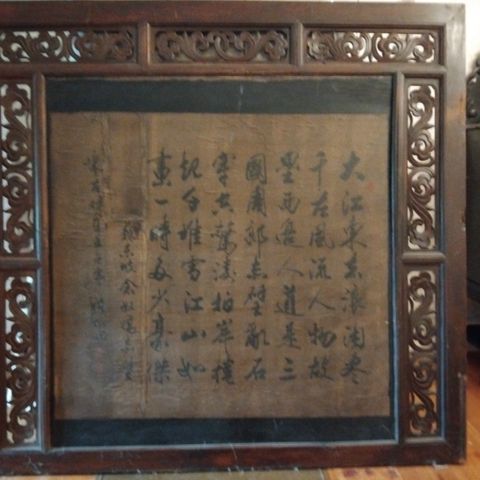 大江東去浪淘盡
千古風流人物故
壘西邊人道是三
國周郎赤壁亂石
穿空驚濤拍岸捲
起千堆雪江山如
畫一時多少豪傑
東坡念奴嬌赤壁